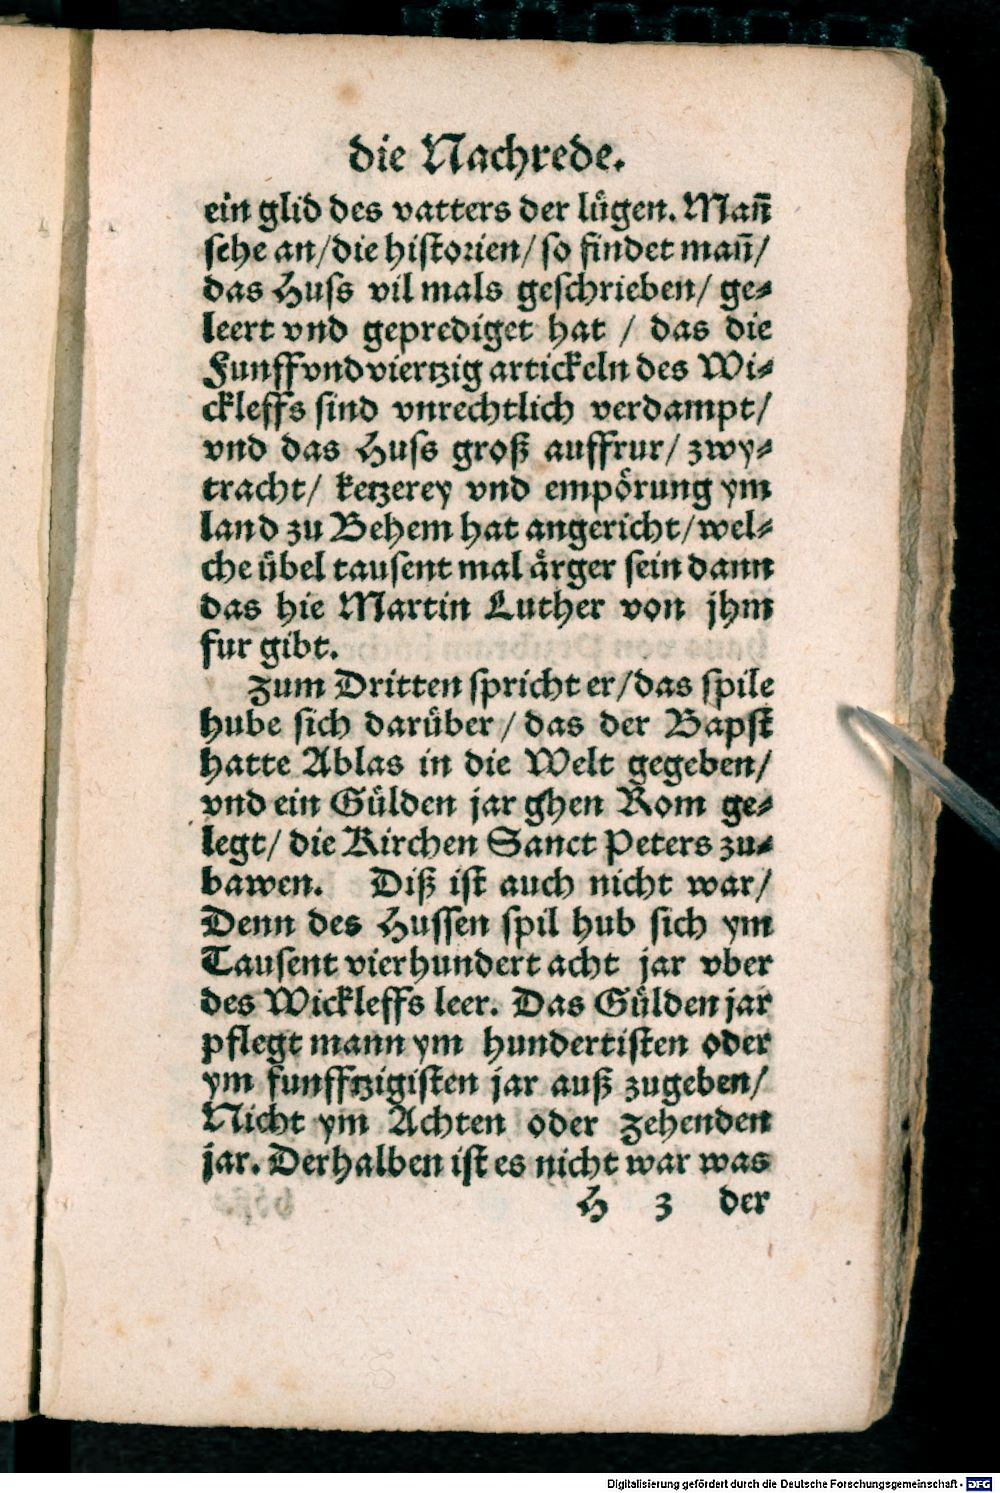 die Nachrede.
ein glid des vatters der lügen. Mañ
sehe an/die historien/so findet mañ/
das Huss vil mals geschrieben/ ge-
leert vnd geprediget hat / das die
Funffvndviertzig artickeln des Wi-
ckleffs sind vnrechtlich verdampt/
vnd das Huss groß auffrur/ zwy-
tracht/ ketzerey vnd empörung ym
land zu Behem hat angericht/wel-
che übel tausent mal ärger sein dann
das hie Martin Luther von jhm
fur gibt.
Zum Dritten spricht er/das spile
hube sich darüber/ das der Bapst
hatte Ablas in die Welt gegeben/
vnd ein Gülden jar ghen Rom ge-
legt/ die Kirchen Sanct Peters zu-
bawen. Diß ist auch nicht war/
Denn des Hussen spil hub sich ym
Tausent vierhundert acht jar vber
des Wickleffs leer. Das Gülden jar
pflegt mann ym hundertisten oder
ym funfftzigisten jar auß zugeben/
Nicht ym Achten oder Zehenden
jar. Derhalben ist es nicht war was
H 3 der
Digitalisierung gefördert durch die Deutsche Forschungsgemeinschaft - DFG